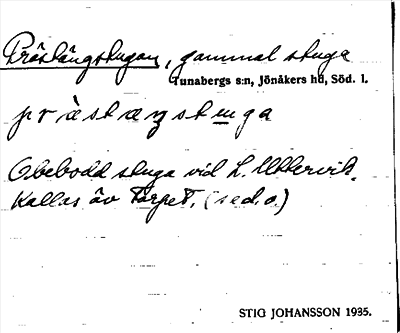 Prästängstugan, gammal stuga
Tunabergs s:n, Jönåkers hd, Söd. l.
Obebodd stuga vid L. Uttervik.
Kallas äv Torpet. (se d. o.)
STIG JOHANSSON 1935.